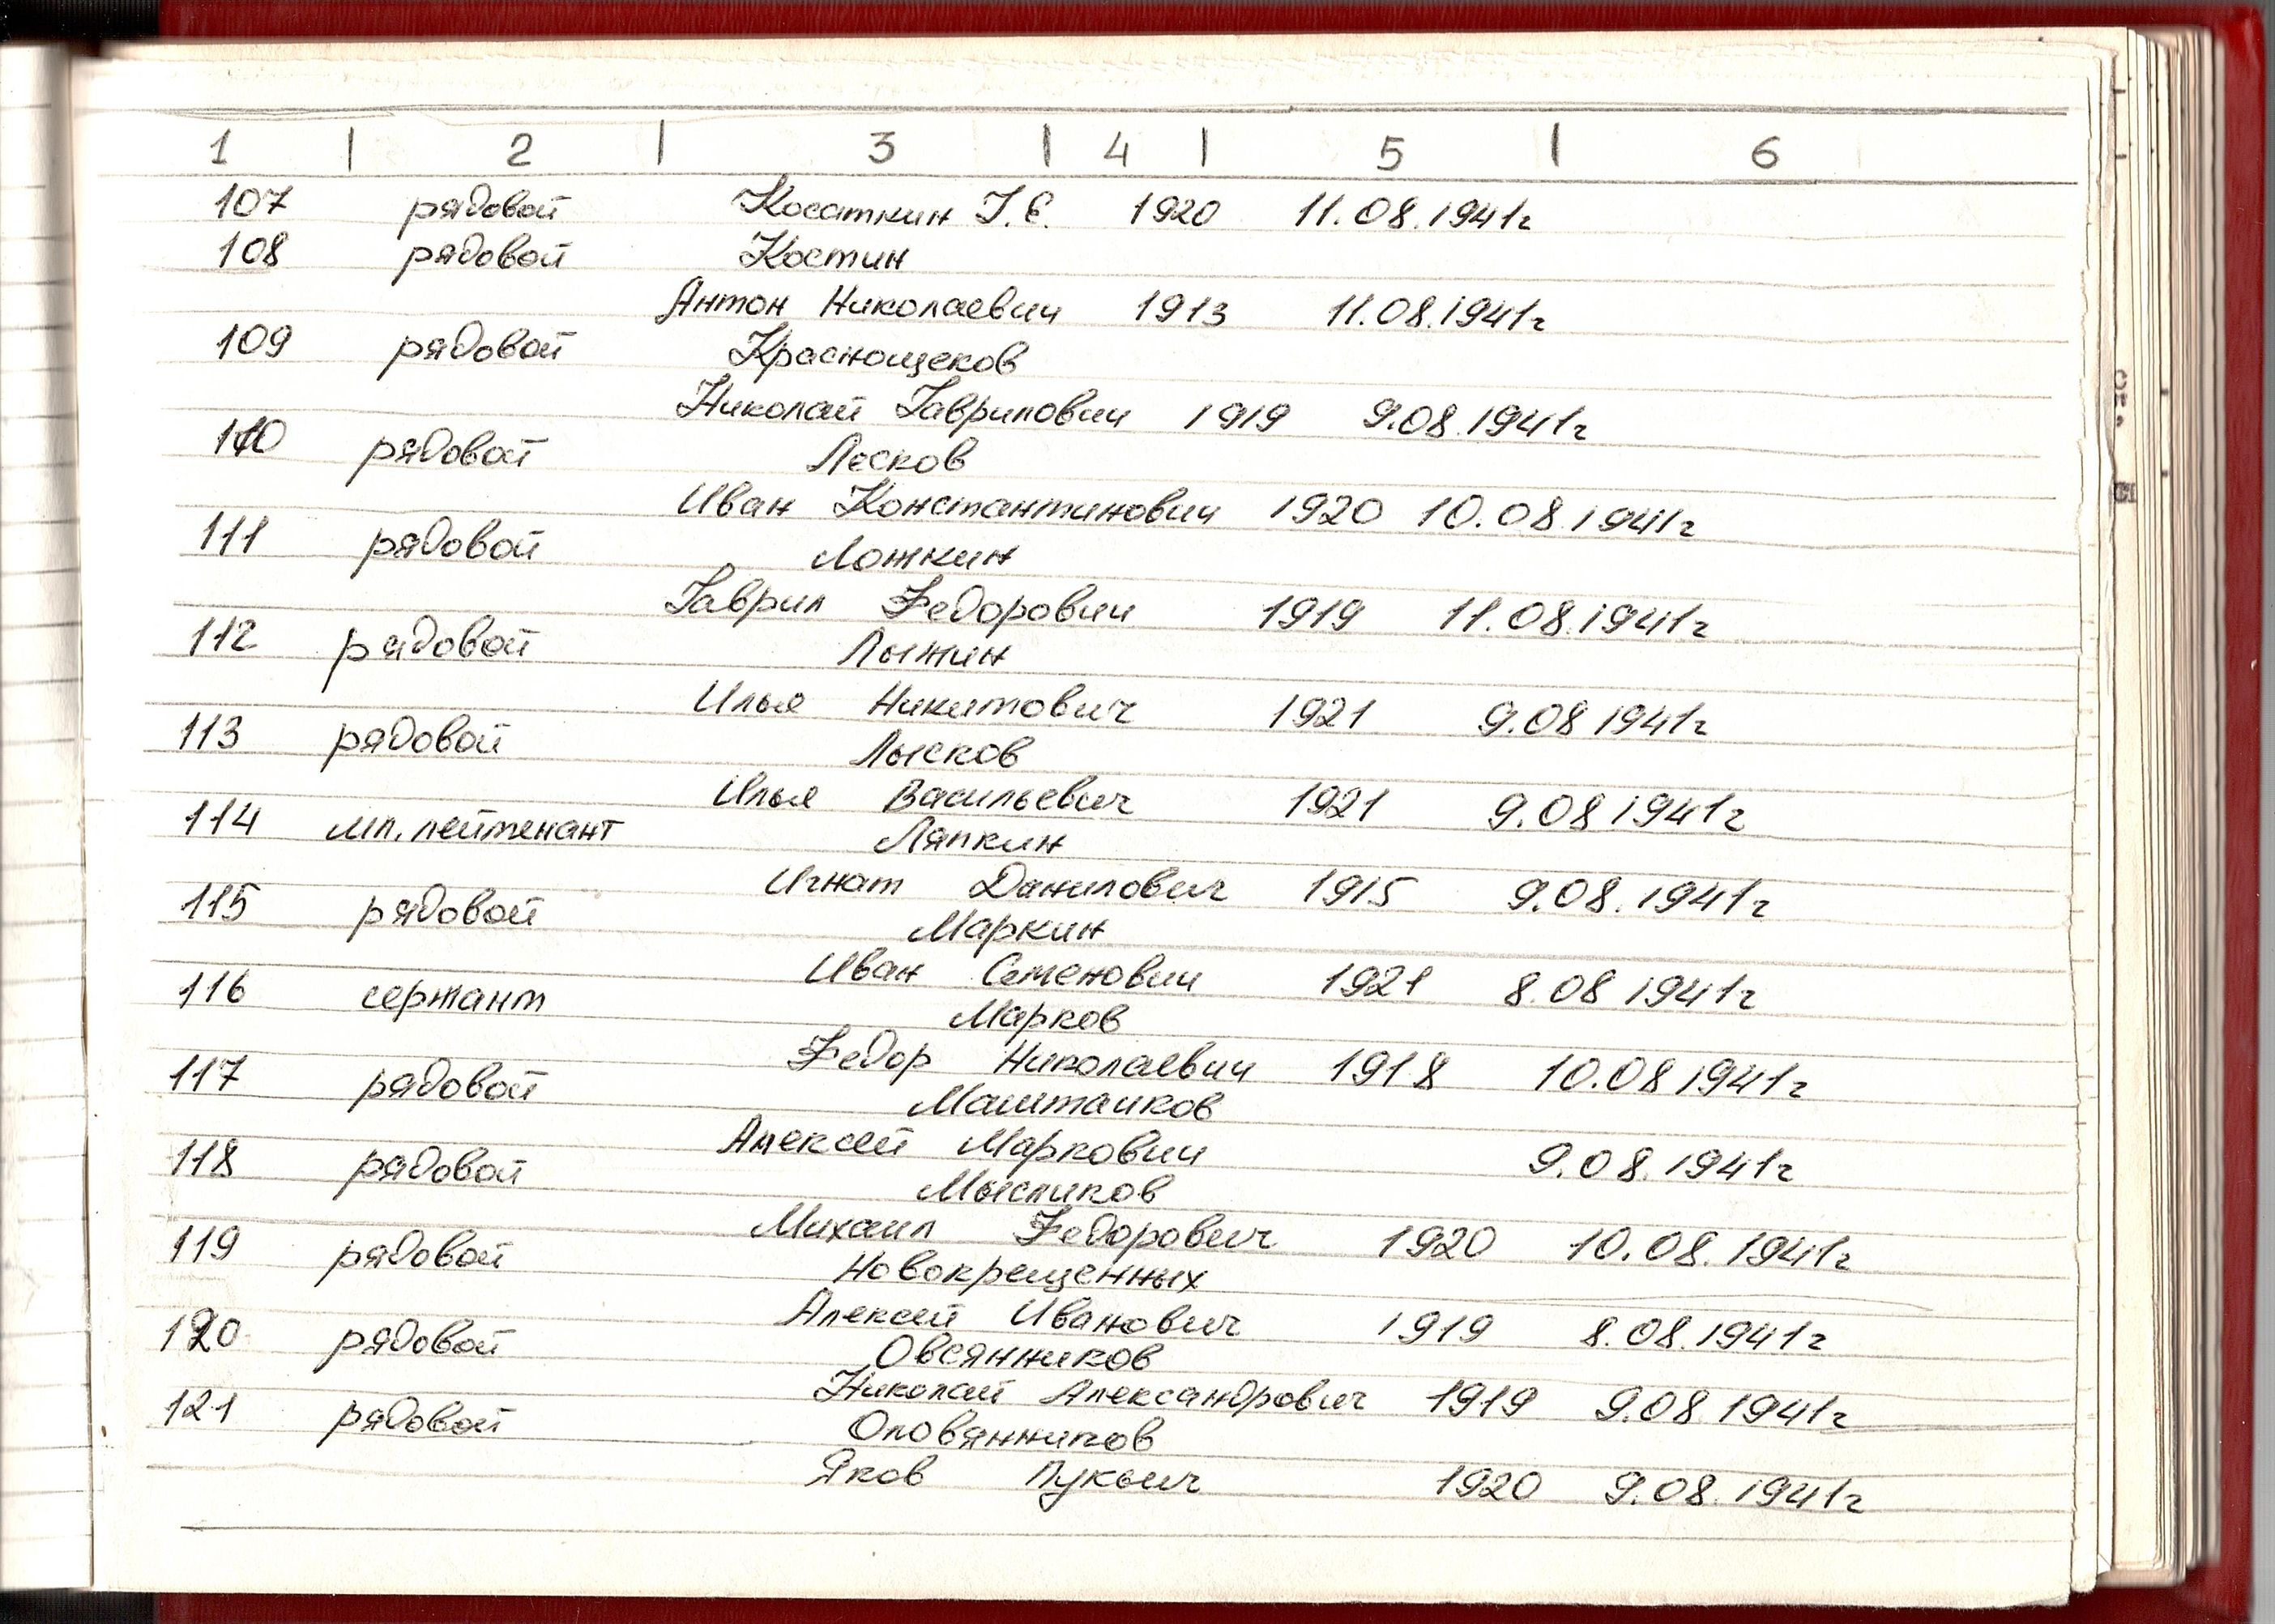 1 | 2 | 3 | 4 | 5 | 6
107 рядовой Косаткин Г.Е. 1920 11.08.1941г
108 рядовой Костин
Антон Николаевич 1913 11.08.1941г
109 рядовой Краснощеков
Николай Гаврилович 1919 9.08.1941г
110 рядовой Лесков
Иван Константинович 1920 10.08.1941г
111 рядовой Ложкин
Гаврил Федорович 1919 11.08.1941г
112 рядовой Лыжин
Илья Никитович 1921 9.08 1941г
113 рядовой Лысков
Илья Васильевич 1921 9.08 1941г
114 мл. лейтенант Ляпкин
Игнат Данилович 1915 9.08.1941г
115 рядовой Маркин
Иван Семенович 1921 8.08 1941г
116 сержант Марков
Федор Николаевич 1918 10.08 1941г
117 рядовой Маштаков
Алексей Маркович 9.08.1941г
118 рядовой Мысликов
Михаил Федорович 1920 10.08.1941г
119 рядовой Новокрещенных
Алексей Иванович 1919 8.08.1941г
120 рядовой Овсянников
Николай Александрович 1919 9.08 1941г
121 рядовой Оловянников
Яков Лукьич 1920 9.08.1941г